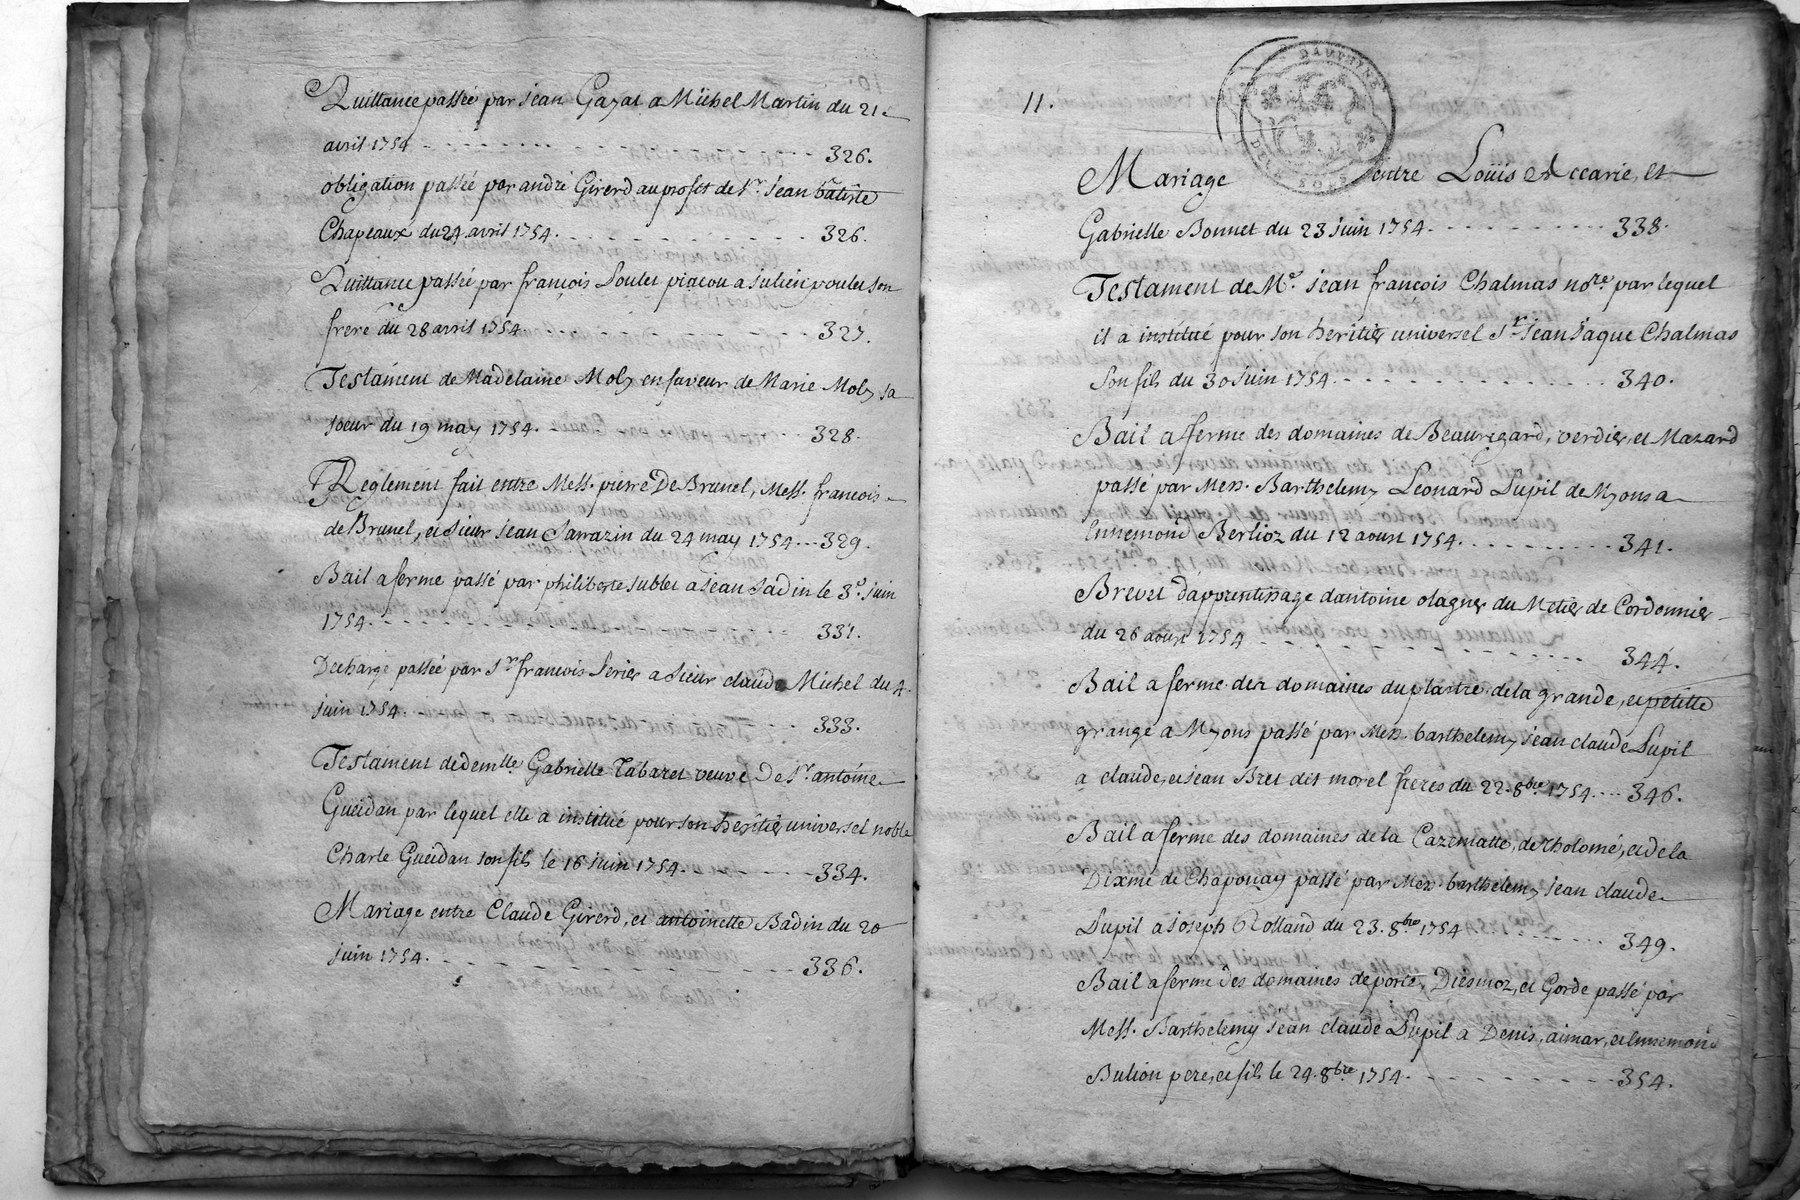 Quittance passée par jean Gayat a Michel Martin du 21
avril 1754 326.
obligation passée par andré Girerd au profit de Sr. jean batiste
Chapeaux du 24 avril 1754. 326.
Quittance passée par françois Poulet piacou a julien poulet son
frere du 28 avril 1754. 327.
Testament de Madelaine Moly en faveur de Marie Moly sa
soeur du 19 may 1754. 328.
Reglement fait entre Mess. pierre De Brunel, Mess. francois
de Brunel, et Sieur jean Sarrazin du 24 may 1754. 329.
Bail a ferme passé par philiberte sublet a jean Badin le 3e. juin
1754. 331.
Decharge passée par Sr. francois Perier a Sieur claude Michel du 4.
juin 1754. 333.
Testament de demlle. Gabrielle Tabaret veuve De Sr. antoine
Gueidan par lequel elle a institué pour son heritier universel noble
Charle Gueidan son fils le 16 juin 1754. 334.
Mariage entre Claude Girerd, et antoinette Badin du 20
juin 1754. 336.
11.
DAUPHINÉ
DEUX SOLS
Mariage entre Louis Accarie, et
Gabrielle Bonnet du 23 juin 1754. 338.
Testament de Me. jean francois Chalmas nore. par lequel
il a institué pour son heritier universel Sr. jean jaque Chalmas
son fils du 30 juin 1754. 340.
Bail a ferme des domaines de Beauregard, verdier, et Mazard
passé par Mess. Barthelemy Leonard Pupil de Myons a
Ennemond Berlioz du 12 aoust 1754. 341.
Brevet d'apprentissage d'antoine olagner du Metier de Cordonnier
du 26 aoust 1754 344.
Bail a ferme des domaines du plastre de la grande, et petitte
grange a Myons passé par Mess. barthelemy jean claude Pupil
a claude, et jean Bret dit morel freres du 22. 8bre. 1754. 346.
Bail a ferme des domaines de la Cazematte, de Tholomé, et de la
Dixme de Chaponay passé par Mess. barthelemy jean claude
Pupil a joseph Rolland du 23. 8bre. 1754 349.
Bail a ferme des domaines de porte, Diesmoz, et Gorde passé par
Mess. Barthelemy jean claude Pupil a Denis, aimar, et Ennemond
Bulion pere, et fils le 24. 8bre. 1754. 354.